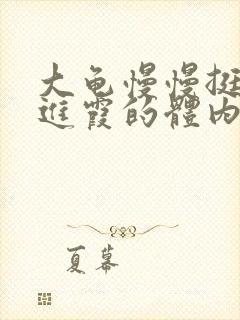 大龟慢慢挺
進霞的體内
夏幕